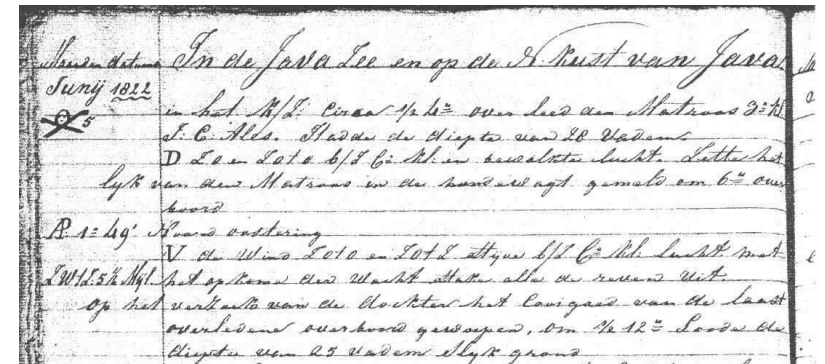 Maand en datum In de Java Zee en op de N. kust van Java
Junij 1822
in het K/Z: Circa 1/2 4 n overleed den Matroos 3 e Kl
5
J. C. Ales. Hadde de diepte van 28 Vadem
D ZO en ZOtO b/Z C: Kl: en bewolkte lucht. Zette het
lyk van den Matroos in de hondewagt gemeld om 6 n over
boord
AP. 1 = 49' Noord oostering
V de Wind ZOtO en ZOtZ styve b/Z C: Kl: lucht met
ZWtZ. 5 1/2 Myl. het op kome der Wacht stake alle de reven uit
op het verzoek van de dockter het Cooigoed van de laast
overledene overboord geworpen, om 1/2 12 n Loode de
diepte van 25 vadem slyk grond